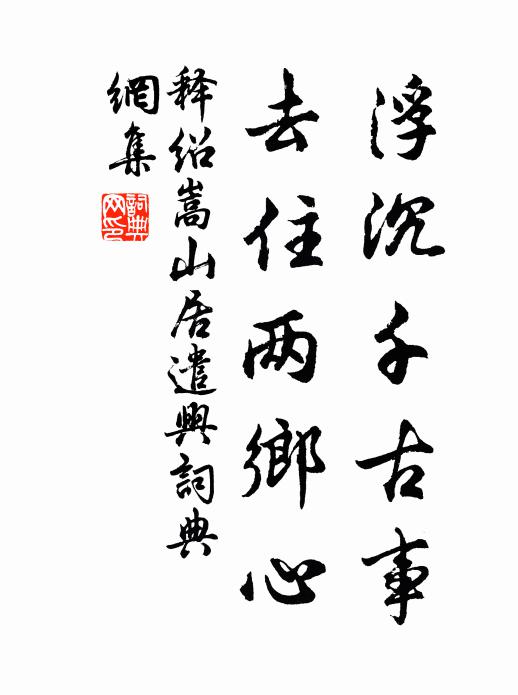 浮沉千古事
去住两鄉心
释绍嵩山居遣興詞典
網集
詞典网印